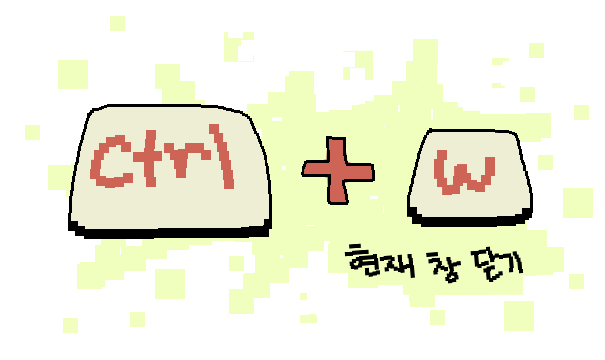 ctrl + w
현재 창 닫기